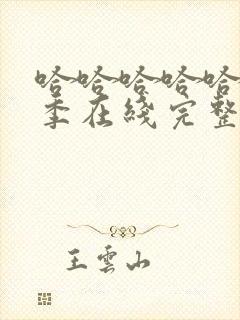 哈哈哈哈哈
季在线完整
王雲山